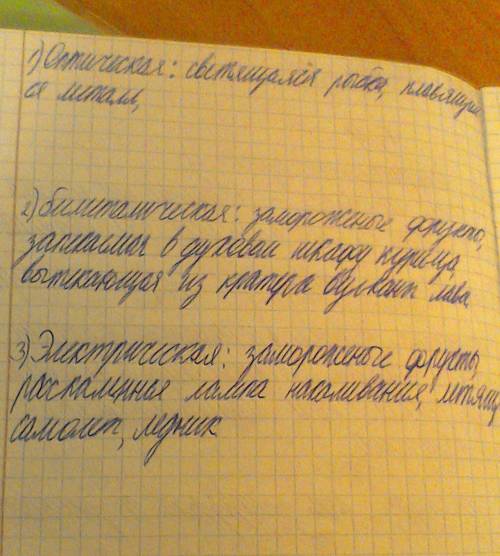 1) Оптическая: светящаяся рыбка, плавящий
ся металл,
2) Биметалическая: замороженые фрукты,
запекаемая в духовом шкафу курица,
вытекающая из кратера вулкана лава
3) Электрическая: замороженые фрукты,
раскаленная лампа накаливания, летящ
самолет, ледник